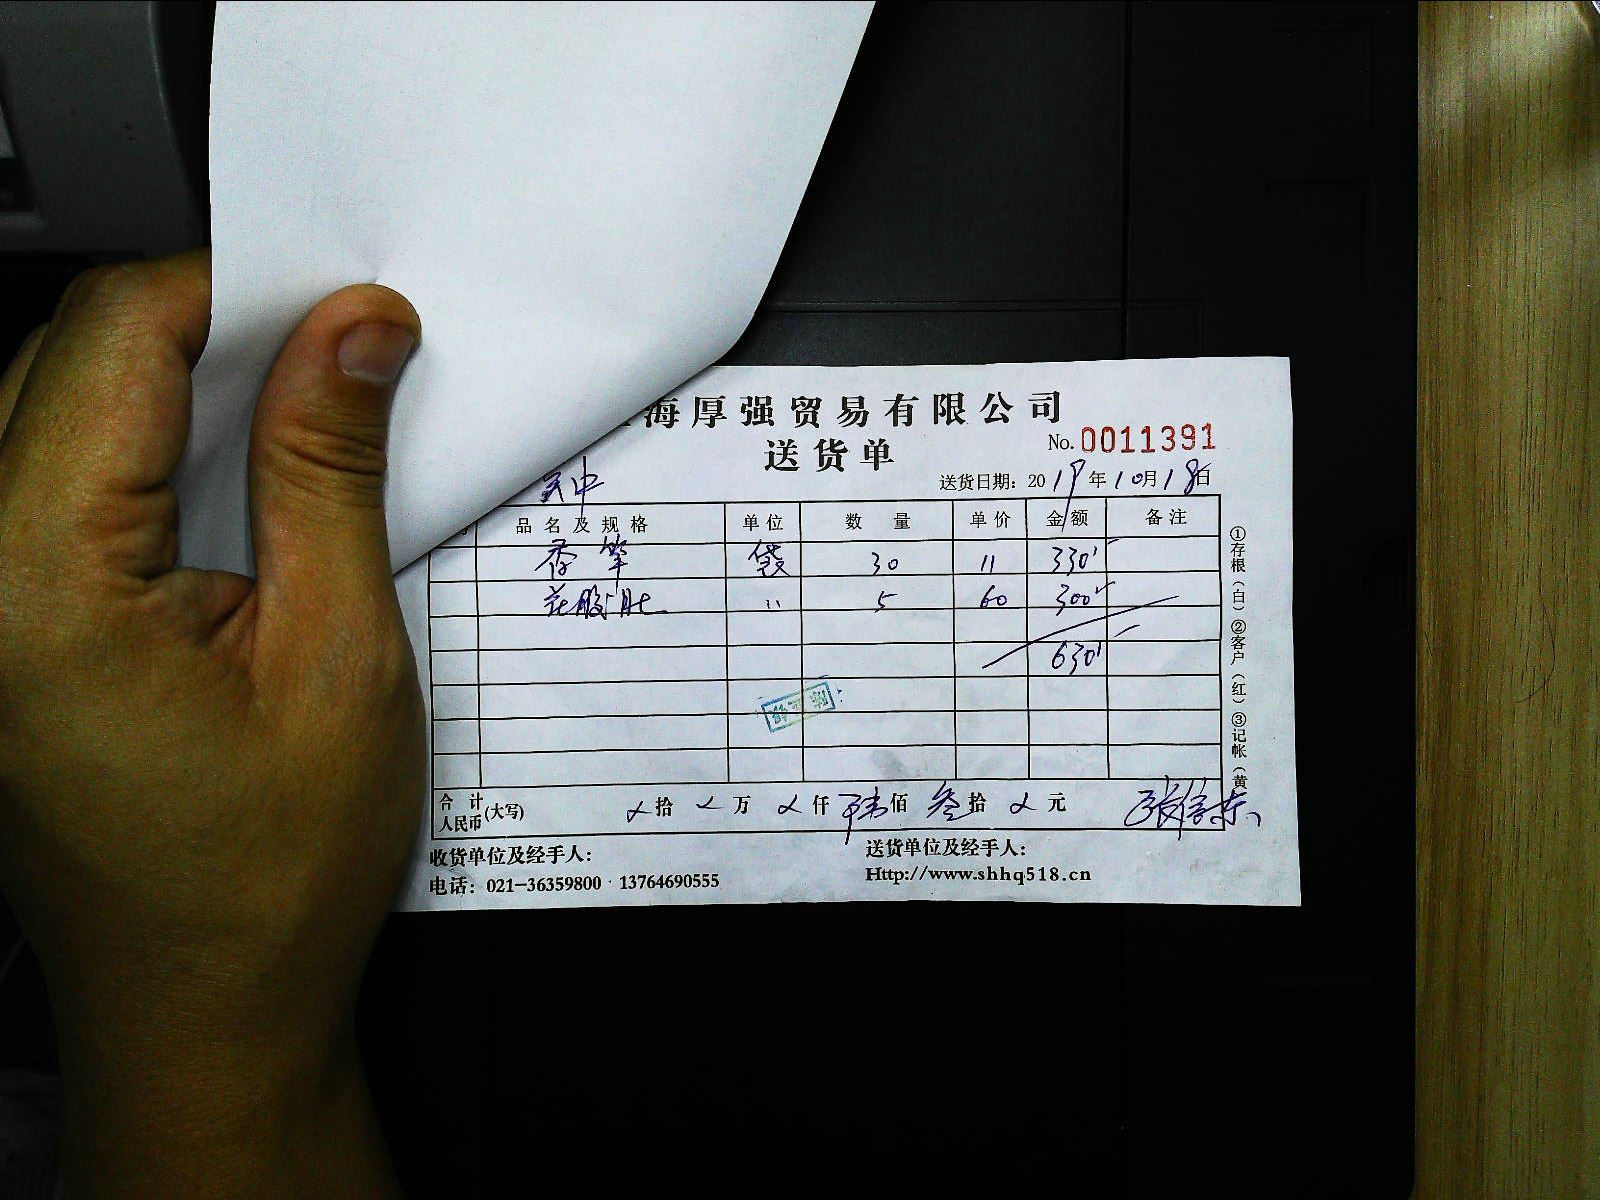 海厚强贸易有限公司
送货单
No. 0011391
送货日期: 2019年10月18日
品名及规格 单位 数量 单价 金额 备注
香 袋 30 11 330
花胶肚 〃 5 60 300
630
合计人民币(大写) 拾 万 仟 陆佰 叁拾 元
张信东
收货单位及经手人:
送货单位及经手人:
电话: 021-36359800 · 13764690555
Http://www.shhq518.cn
①存根(白)②客户(红)③记帐(黄